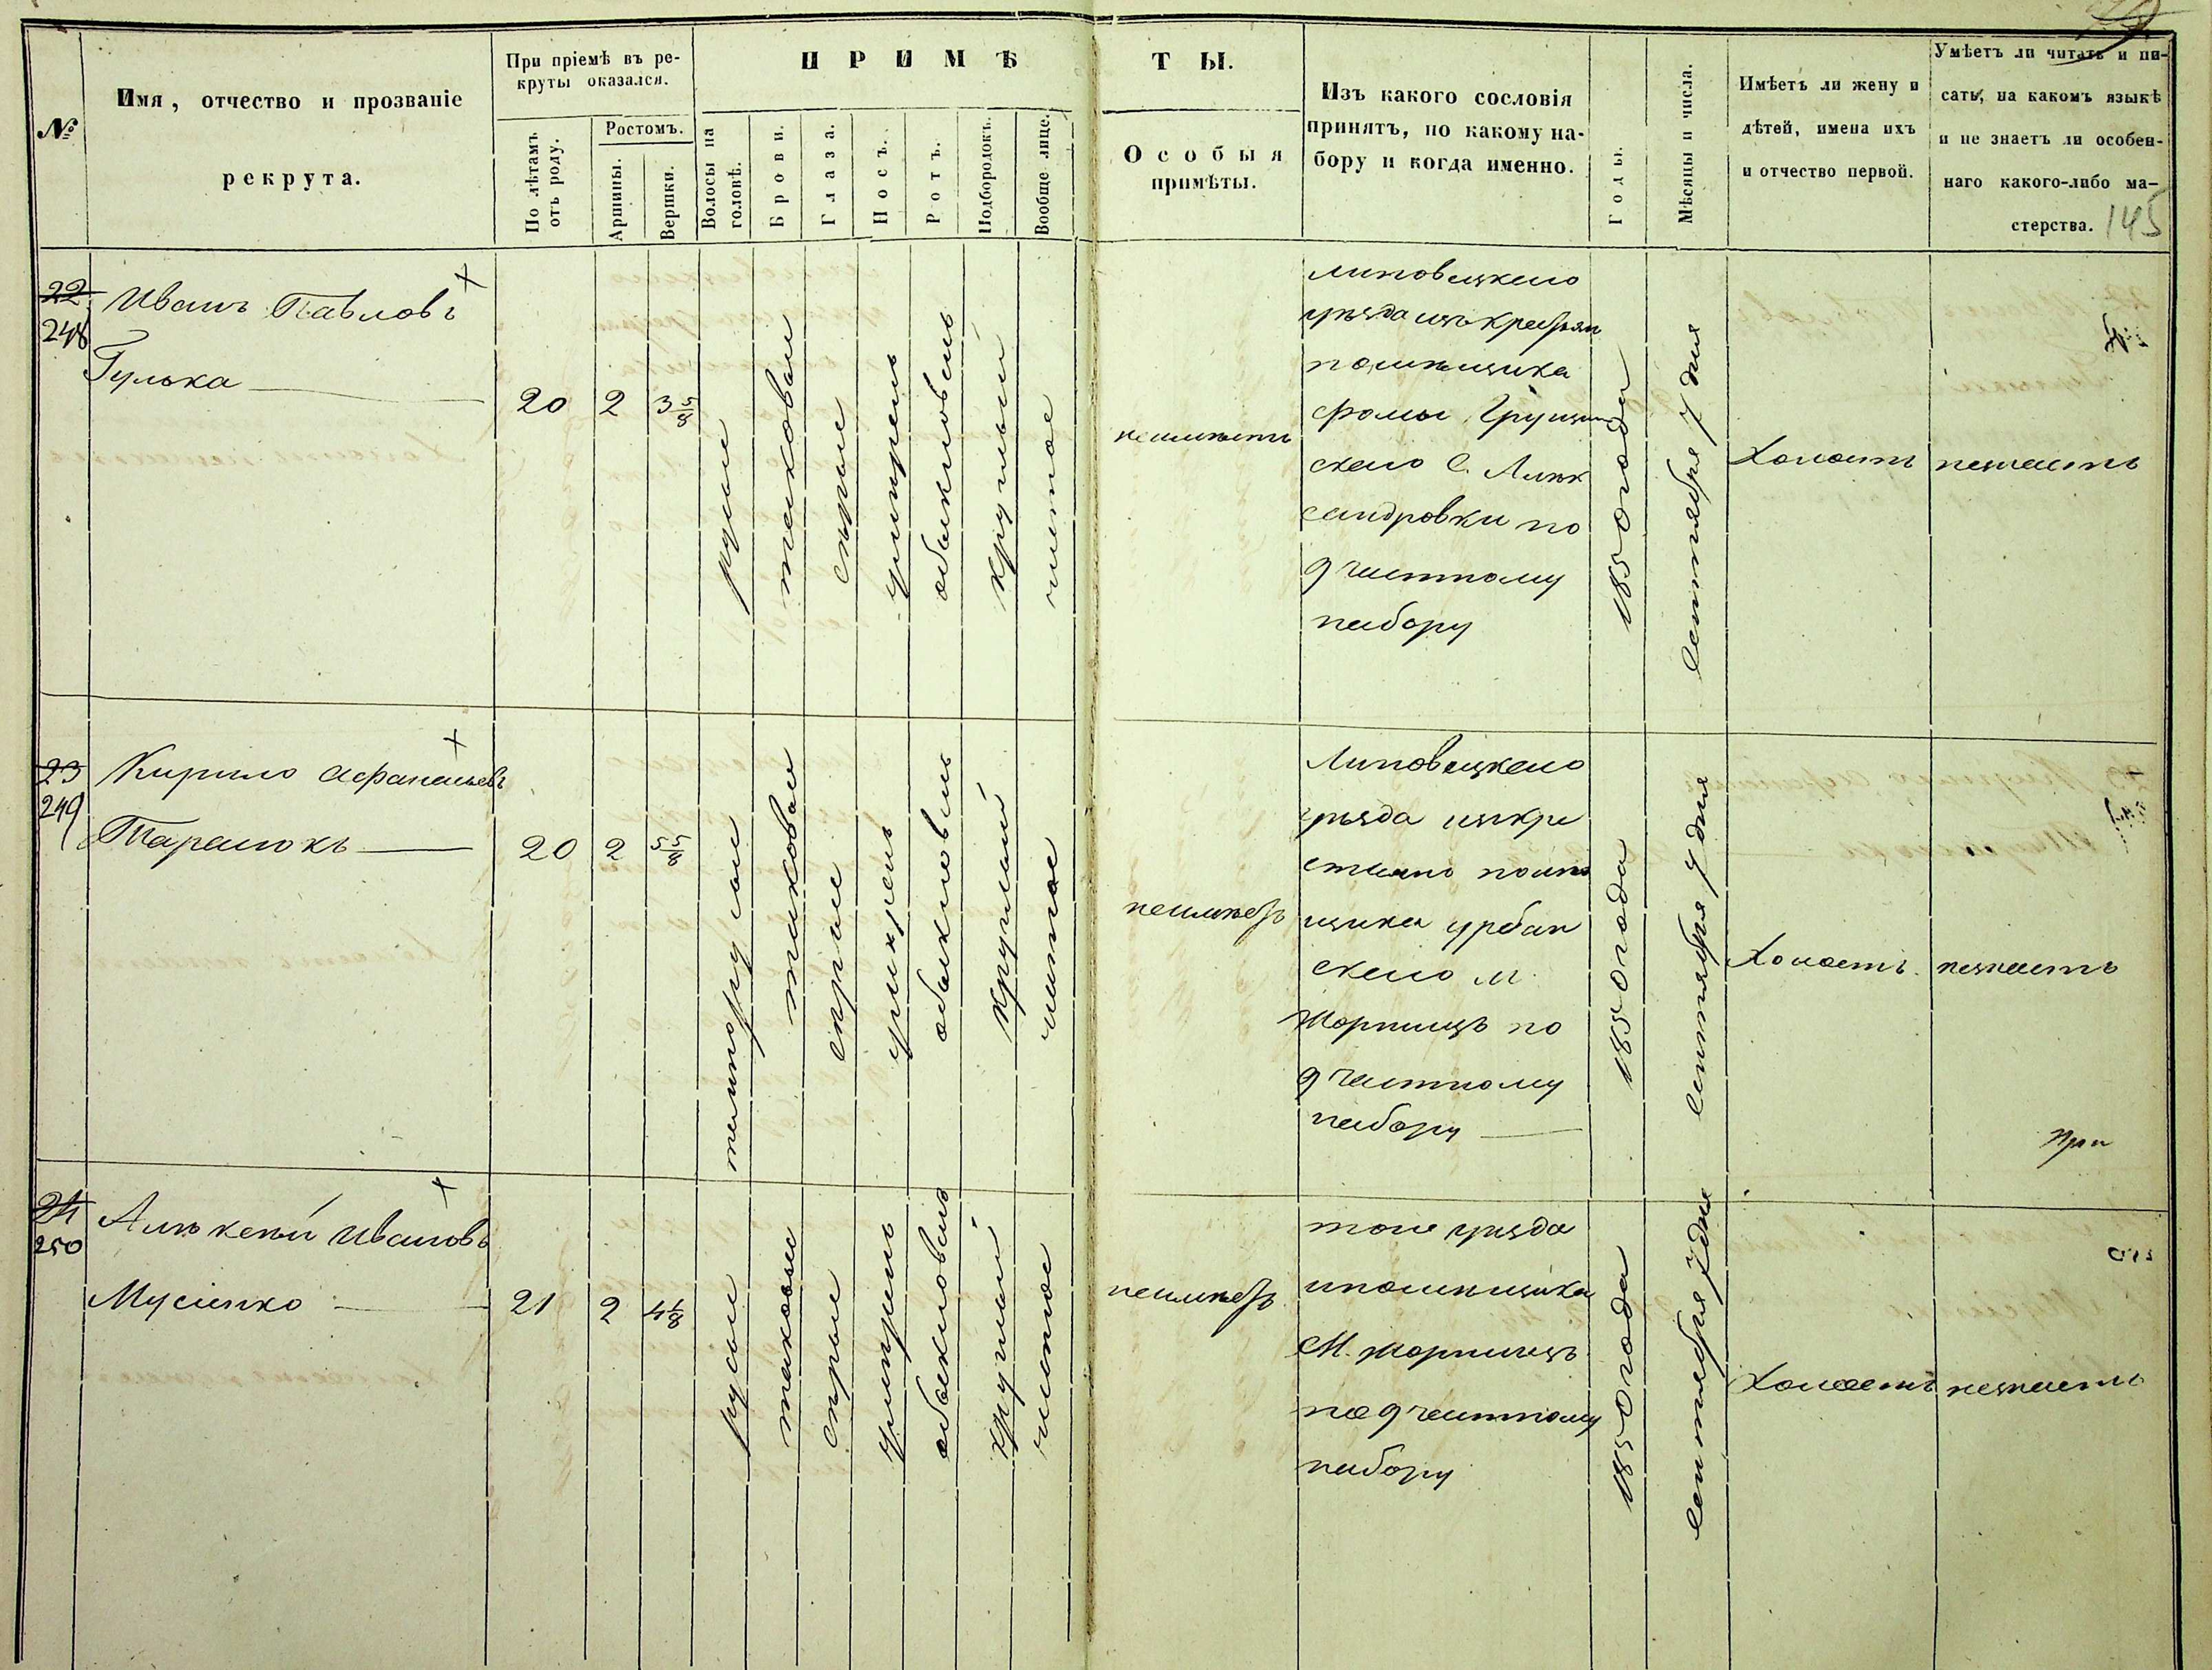 №
Имя, отчество и прозваніе
рекрута.
При пріемѣ въ ре-
круты оказался.
По лѣтамъ
отъ роду.
Ростомъ.
Аршины.
Вершки.
ПРИМѢ
Волосы на
головѣ.
Брови.
Глаза.
Носъ.
Ротъ.
Подбородокъ.
Вообще лице.
ТЫ.
Особыя
примѣты.
Изъ какого сословія
принятъ, по какому на-
бору и когда именно.
Годы.
Мѣсяцы и числа.
Имѣетъ ли жену и
дѣтей, имена ихъ
и отчество первой.
Умѣетъ ли читать и пи-
сать, на какомъ языкѣ
и не знаетъ ли особен-
наго какого-либо ма-
стерства. 145
22
248
Иванъ Павловъ
Гулька
20
2
3 5/8
русые
таковые
сѣрые
умѣренъ
обыкновенъ
круглый
чистое
неимѣетъ
Липовецкаго
уѣзда изъ крестьян
помѣщика
Фомы Грущин
скаго С. Алек
сандровки по
9 частному
набору
1850 года
Сентября 7 дня
Холостъ
незнаетъ
23
249
Кирило Афанасьевъ
Тарасюкъ
20
2
5 5/8
темнорусые
таковые
сѣрые
умѣренъ
обыкновенъ
круглый
чистое
неимѣетъ
Липовецкаго
уѣзда изъ кре
стьянъ помѣ
щика Урбан
скаго м.
Жорнищъ по
9 частному
набору
1850 года
Сентября 7 дня
Холостъ
незнаетъ
при
24
250
Алѣксѣй Ивановъ
Мусіенко
21
2
русые
таковые
сѣрые
умѣренъ
обыкновенъ
круглый
чистое
неимѣетъ
того уѣзда
ипомѣщика
М. Жорнищъ
по 9 частному
набору
1850 года
Сентября 7 дня
Холостъ
незнаетъ